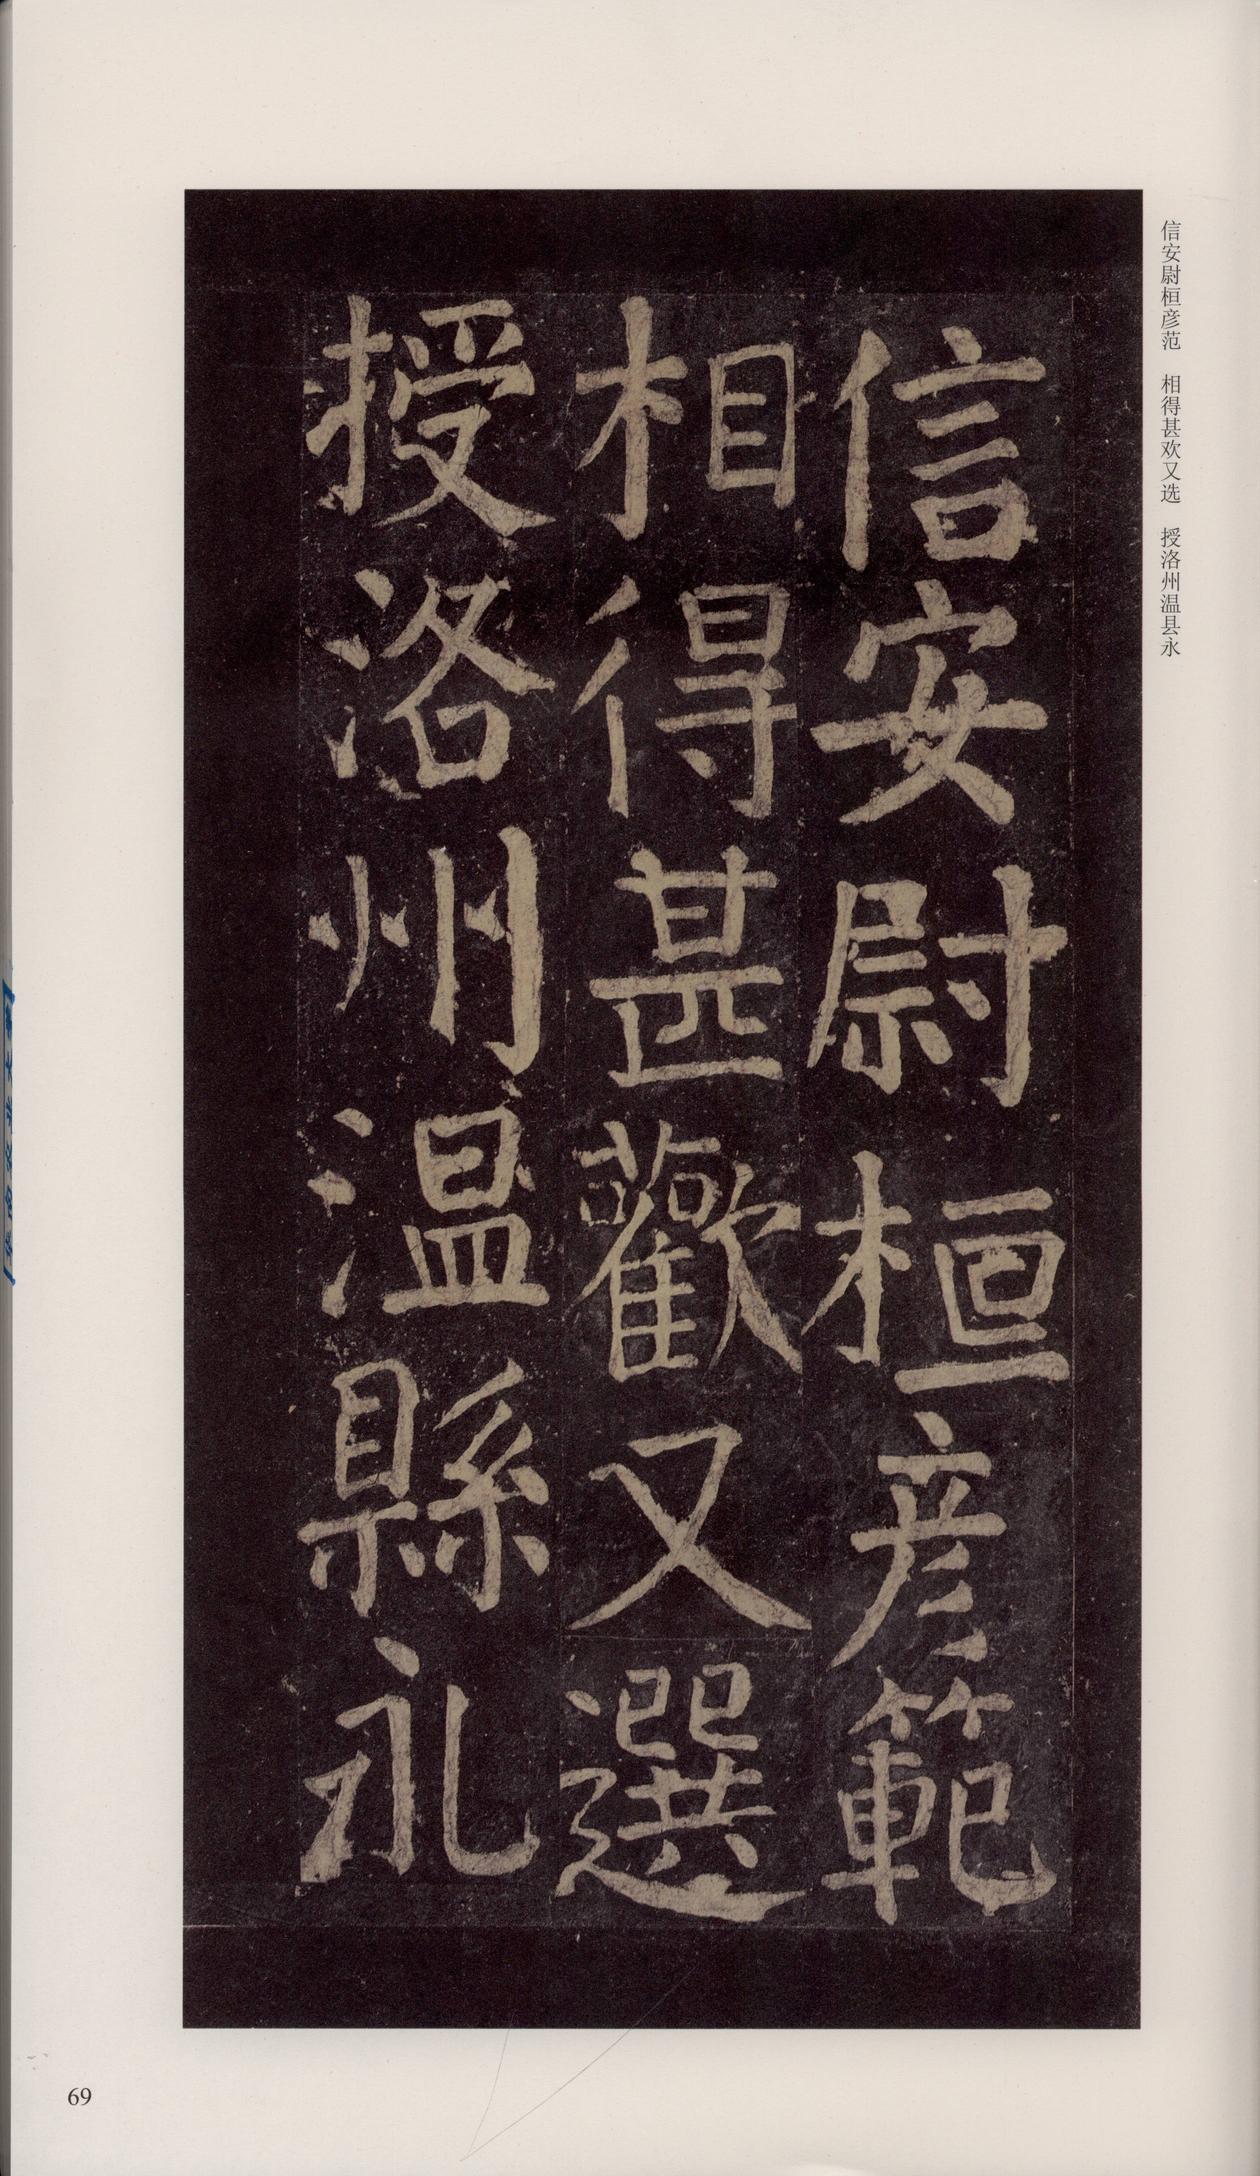 信安尉桓彦范　相得甚欢又选　授洛州温县永
信安尉桓彦範
相得甚歡又選
授洛州温縣永
69